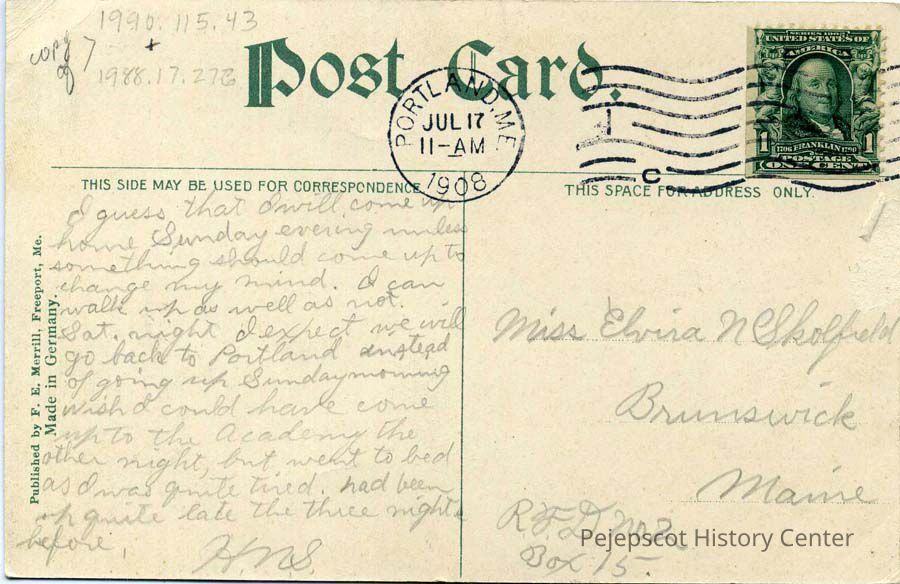 1990.115.43
copy of 7
1988.17.27b
Post Card.
PORTLAND, ME
JUL 17
11-AM
1908
C
SERIES 1902
UNITED STATES OF
AMERICA
1 1
1706 FRANKLIN 1790
POSTAGE
ONE CENT
THIS SIDE MAY BE USED FOR CORRESPONDENCE
THIS SPACE FOR ADDRESS ONLY.
Published by F. E. Merrill, Freeport, Me.
Made in Germany.
I guess that I will come up
home Sunday evening unless
something should come up to
change my mind. I can
walk up as well as not.
Sat. night I expect we will
go back to Portland instead
of going up Sunday morning
wish I could have come
up to the Academy the
other night, but went to bed
as I was quite tired. had been
up quite late the three nights
before,
H.N.S.
Miss Elvira N C Skolfield
Brunswick
Maine
R.F.D No 2
Box 15
Pejepscot History Center